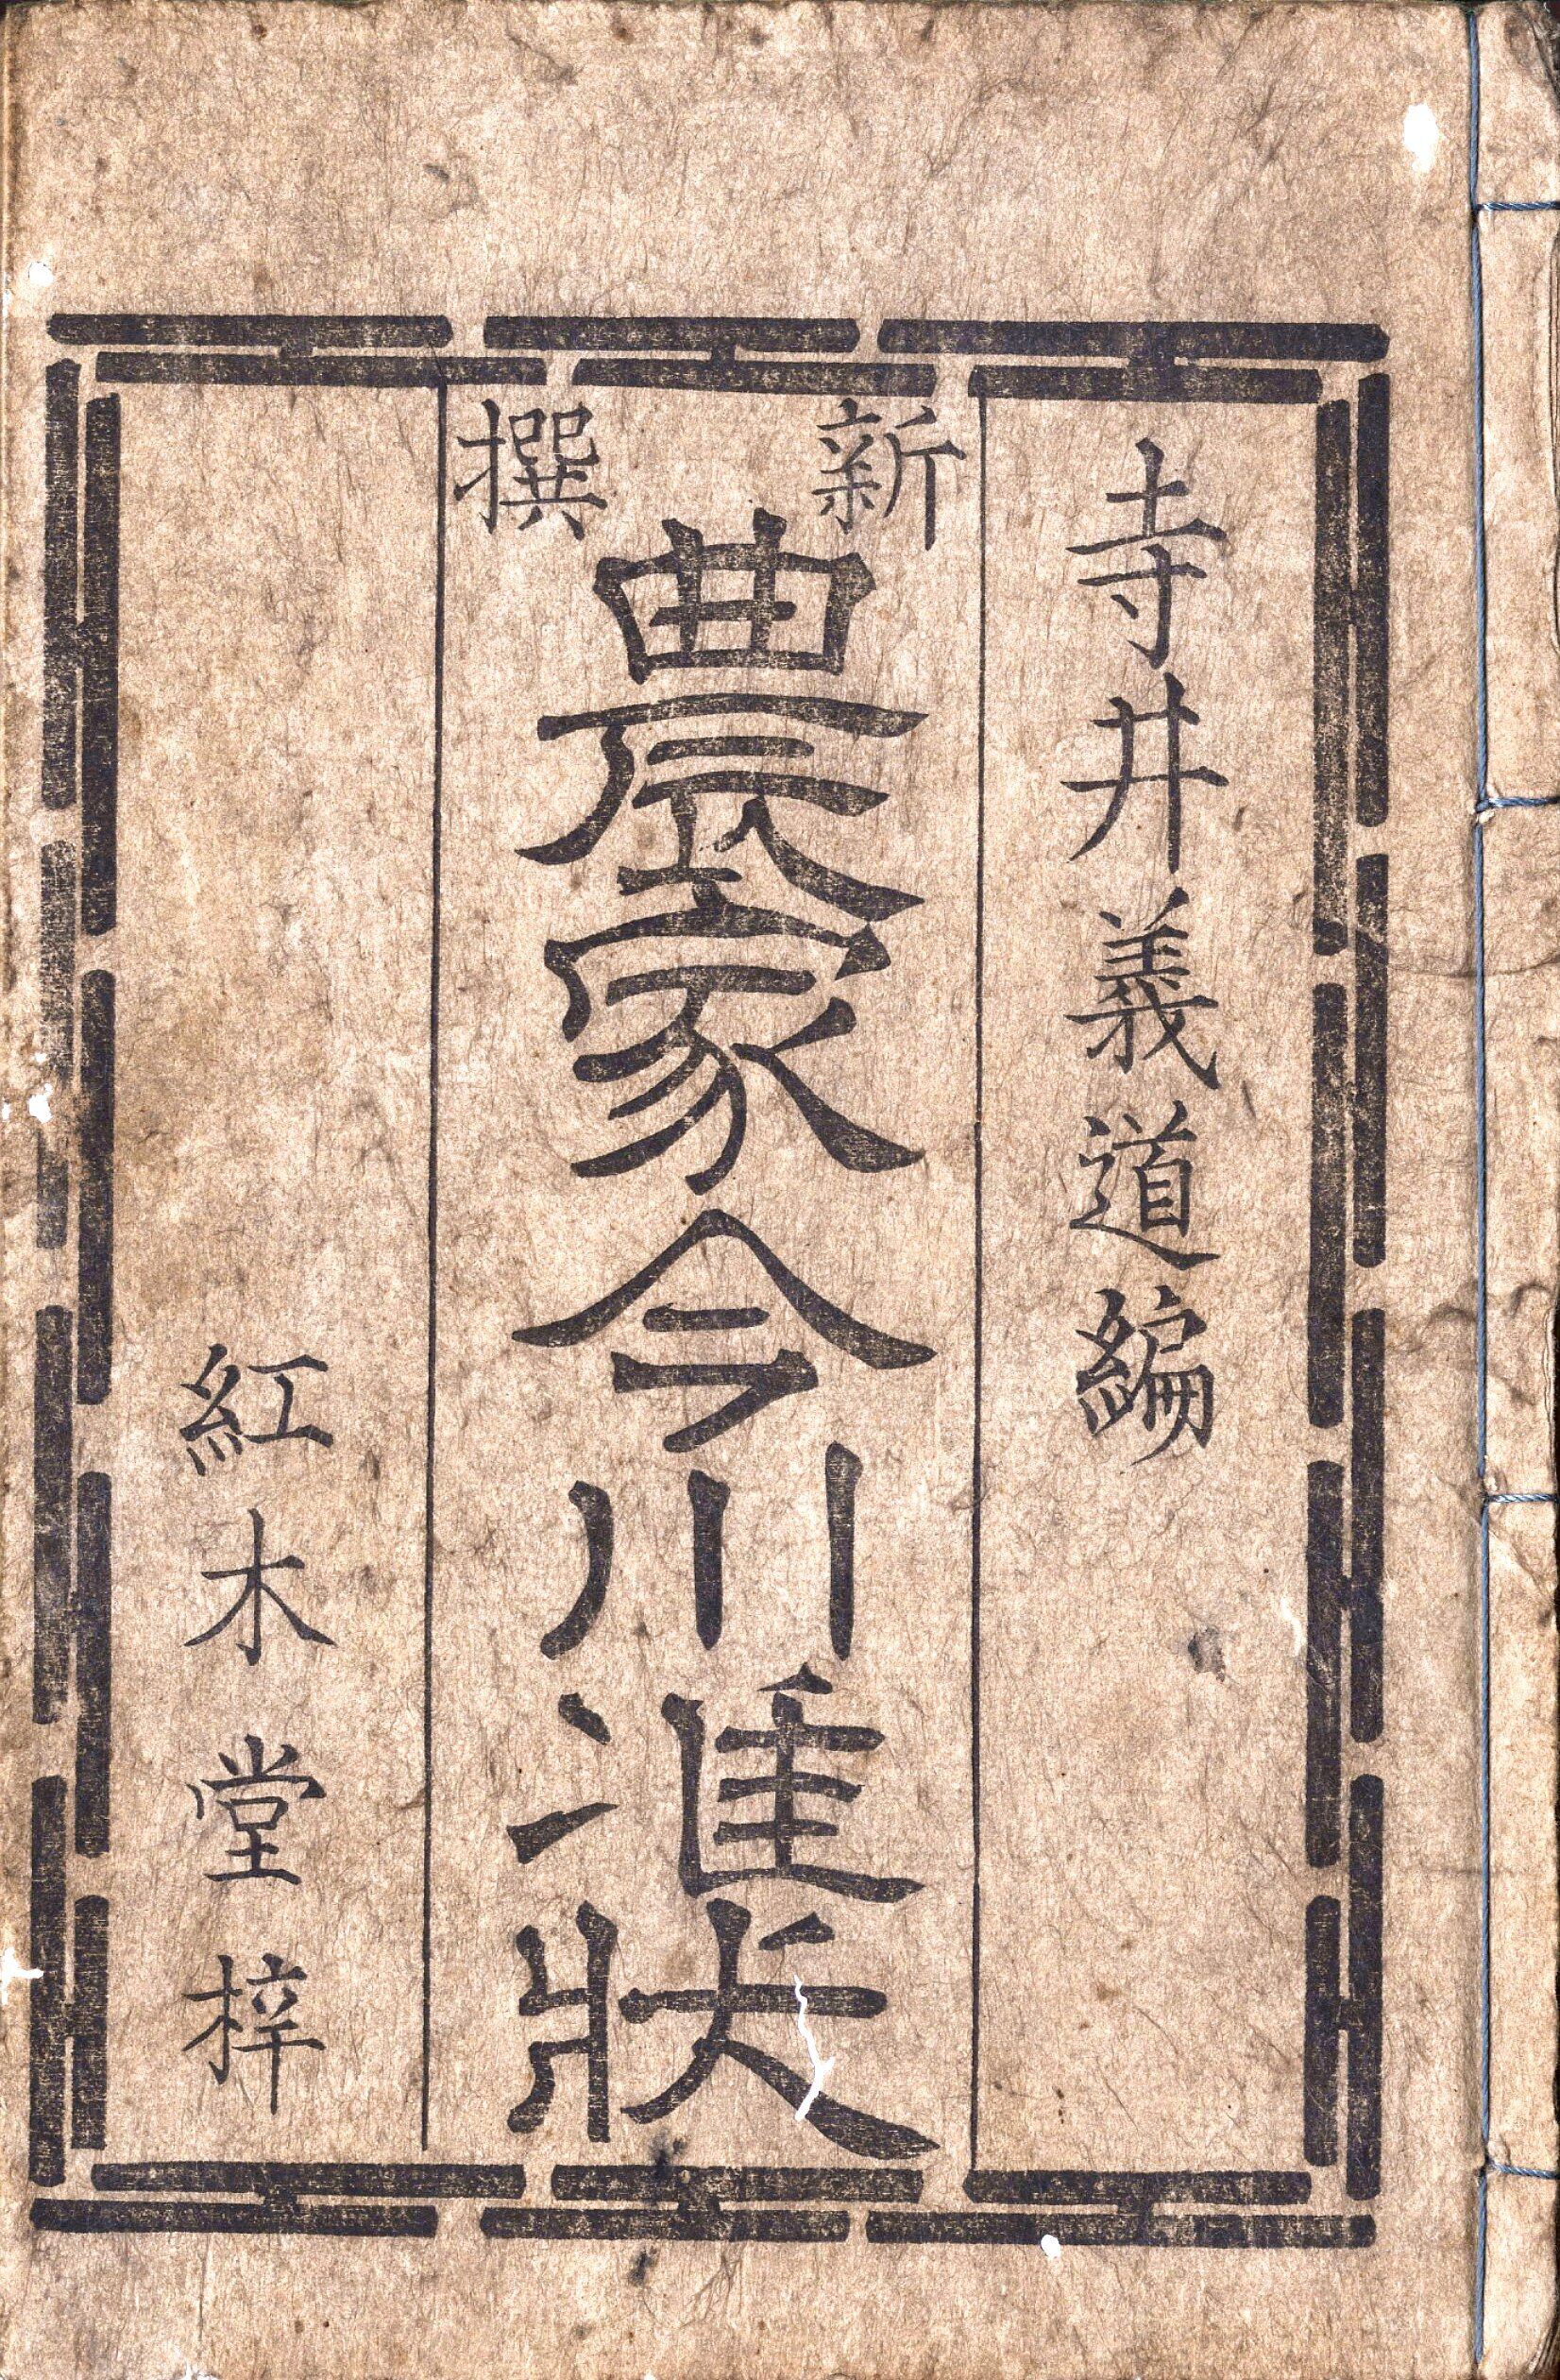 寺井義道編
新撰
農家今川准狀
紅木堂梓